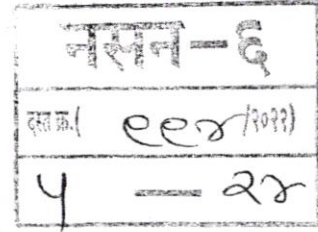 नसन-६
दस्त क्र.( ९९४/२०२२)
५ — २४